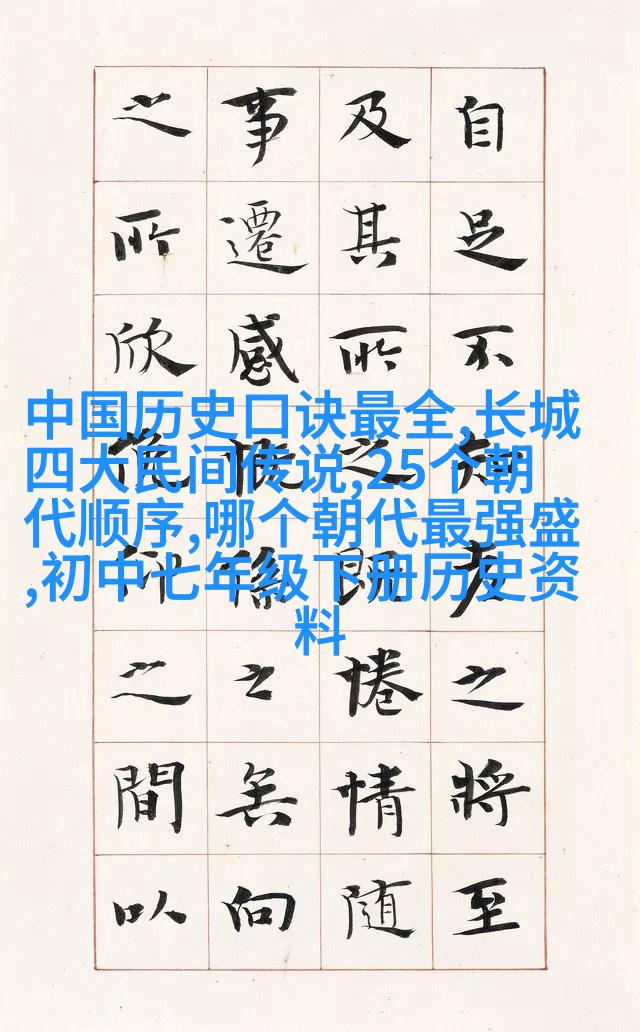 自足不知老之將至
及其所之既惓情隨
事遷感慨係之矣向
之所欣俛仰之間以
中国历史口诀最全,长城
四大民间传说,25个朝
代顺序,哪个朝代最强盛
,初中七年级下册历史资
料